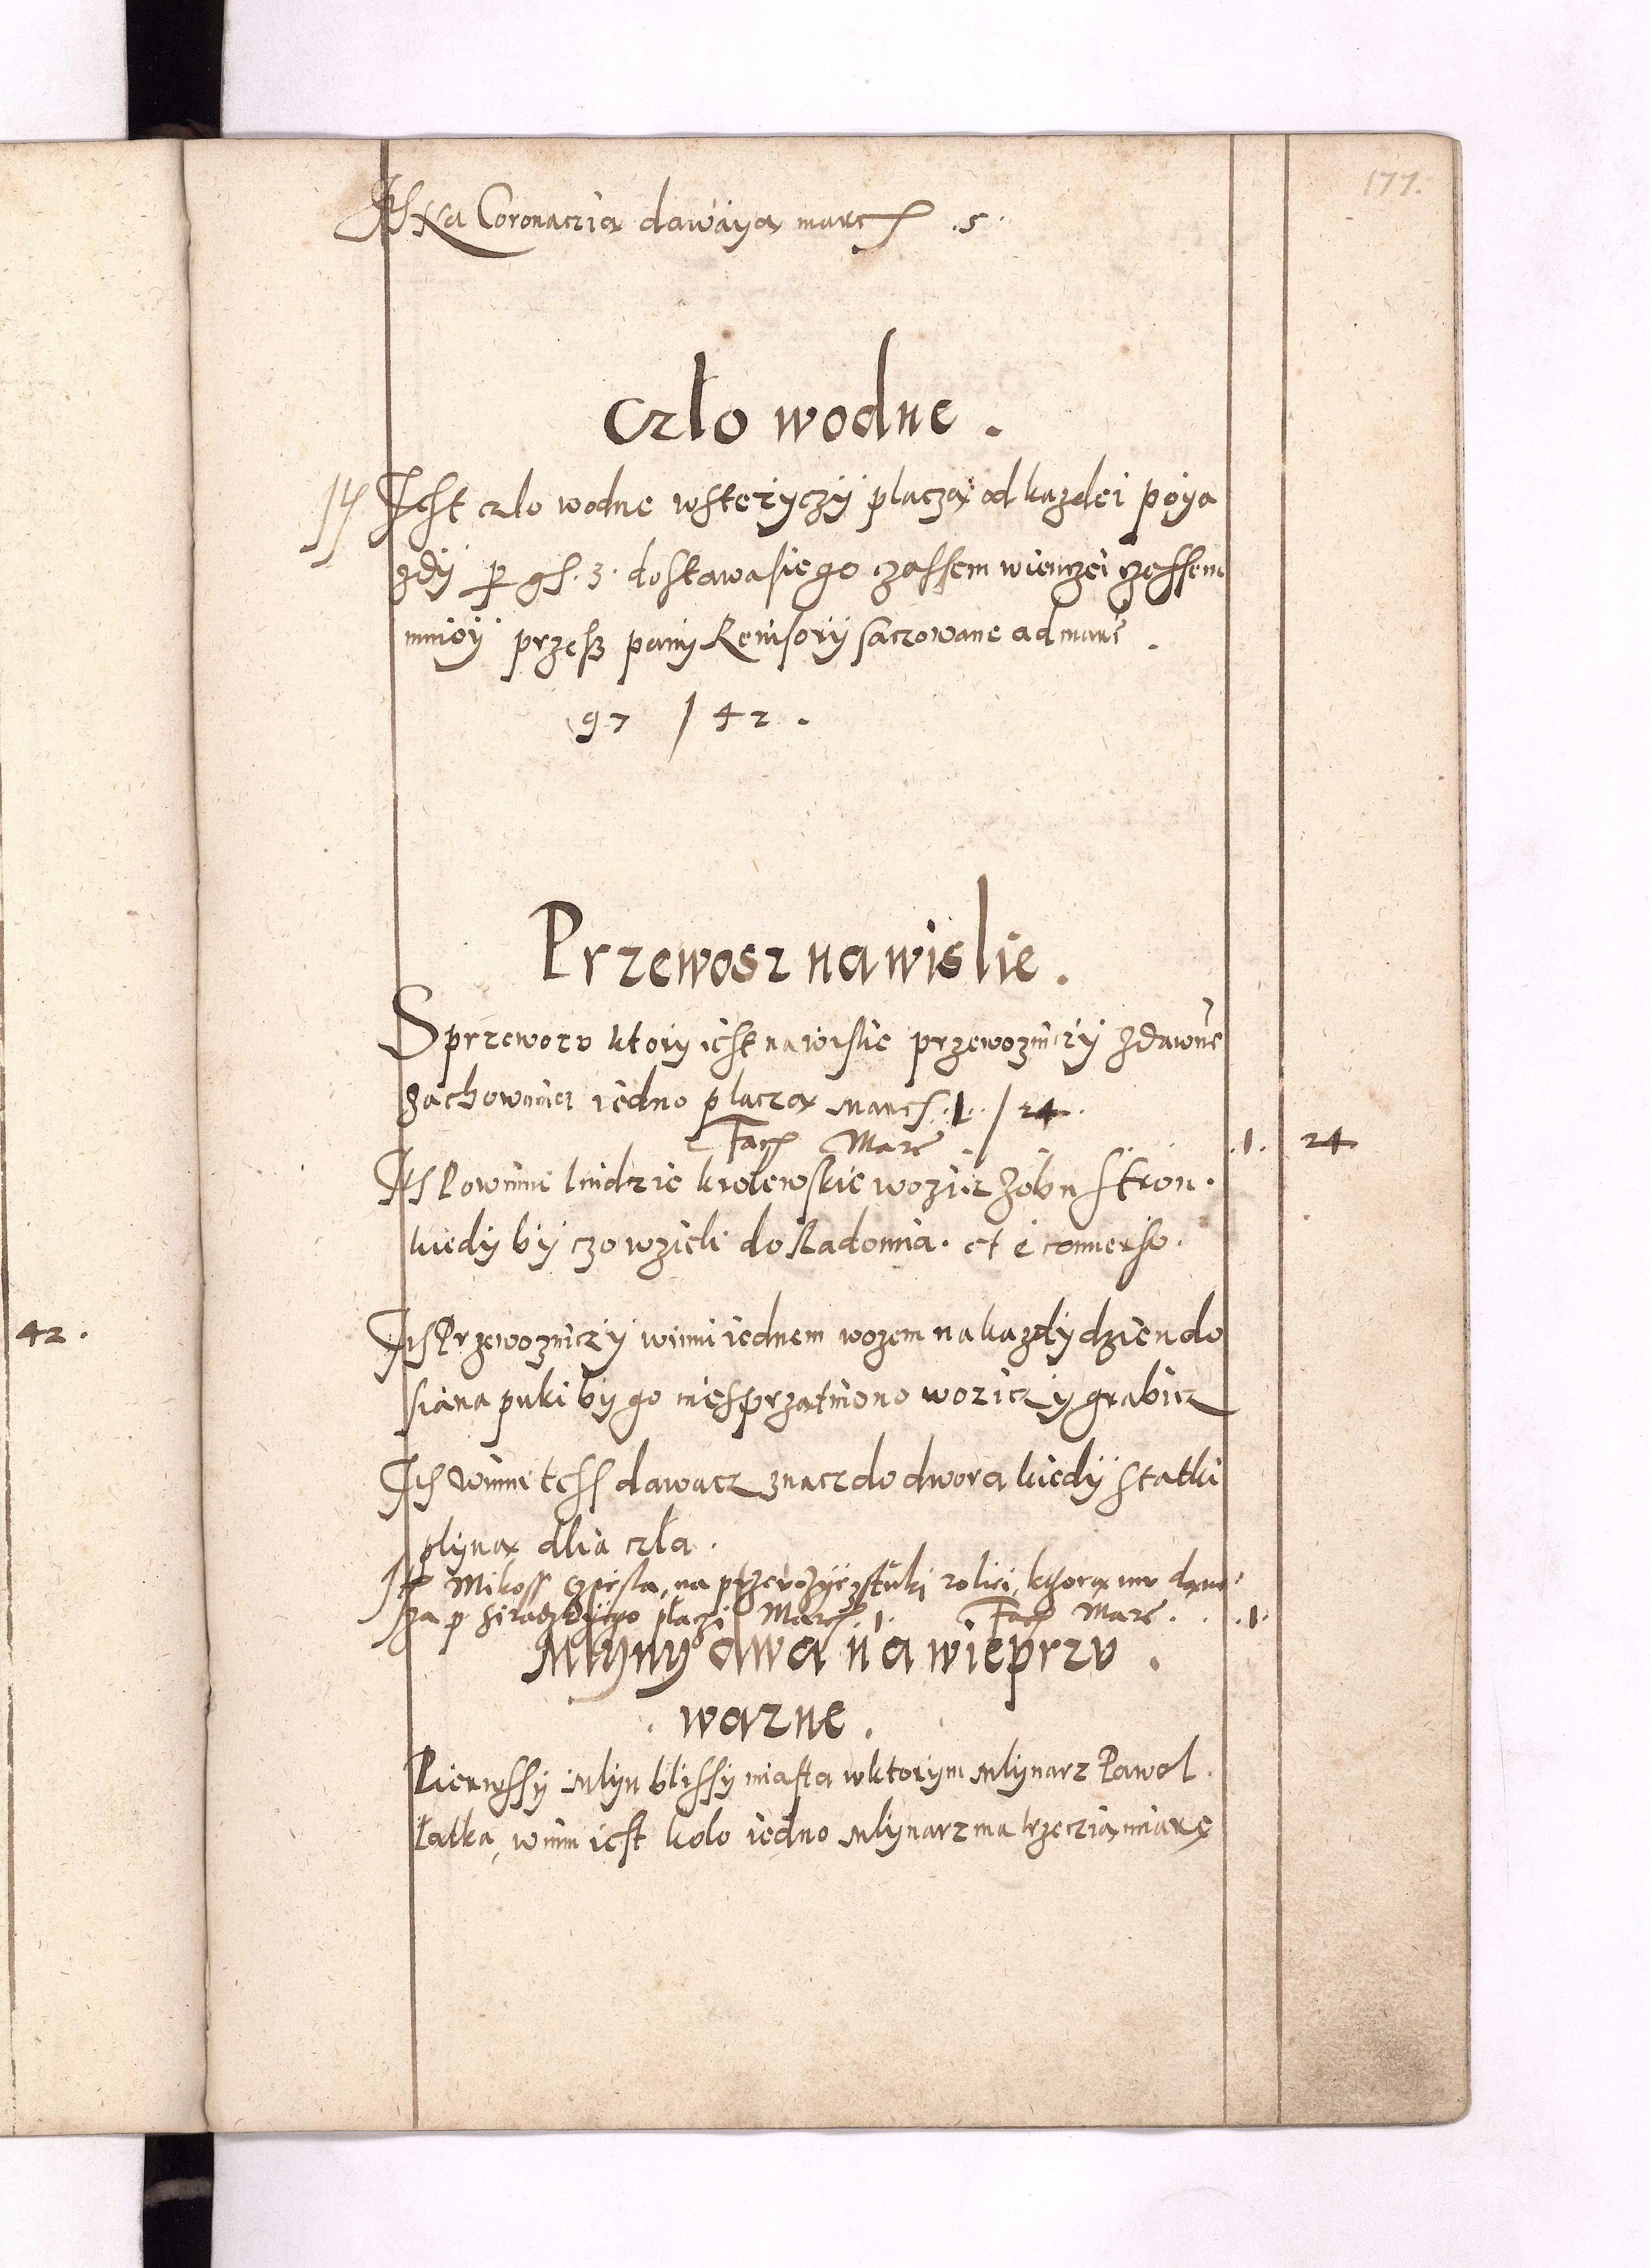 177.
Its Na Coronaczią dawaią marcs .5.
Czło wodne .
It Jest czlo wodne wsteżyczÿ placzą od kazdei poÿa
zdÿ p gs. 3. dostawasie go czassem wienczei czassem
mnieÿ przess panÿ Reuisorÿ saczowane ad marc .
97 / 42 .
Przewosz na wislie .
S przewozu ktorÿ iest na wislie przewozniczÿ zdawne
zachowania iedno placzą marcs .1. / 24.
Facs Marc . .1. 24
Its Powinni liudzie krolewskie wozicz zobu stron .
kiedÿ bÿ czo wzieli do Radomia . et e conuerso .
Its Przewozniczÿ winni iednem wozem na kazdÿ dzien do
siana puki bÿ go nie sprzatniono wozicz ÿ grabicz
Its winni tess dawacz znacz do dwora kiedÿ statki
42 .
plÿną dlia cła .
It Mikoss na sztuki rolei, kthorą mu
za p placzi Marcs .1. Facs Marc . . .1.
Młÿnÿ dwa na wieprzu .
. warzne .
Pierwssÿ mlÿn blissÿ miasta wktorÿm mlÿnarz Pawel .
Łatka, wnim iest kolo iedno mlÿnarz ma trzeczią miarę